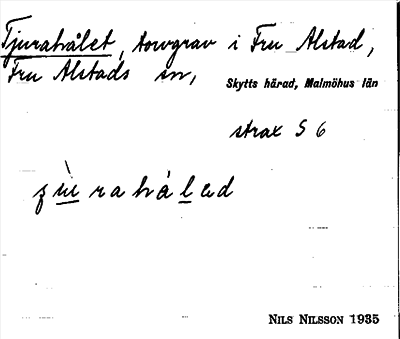 Tjurahålet, torvgrav i Fru Alstad,
Fru Alstads sn,
Skytts härad, Malmöhus län
strax S 6
NILS NILSSON 1935